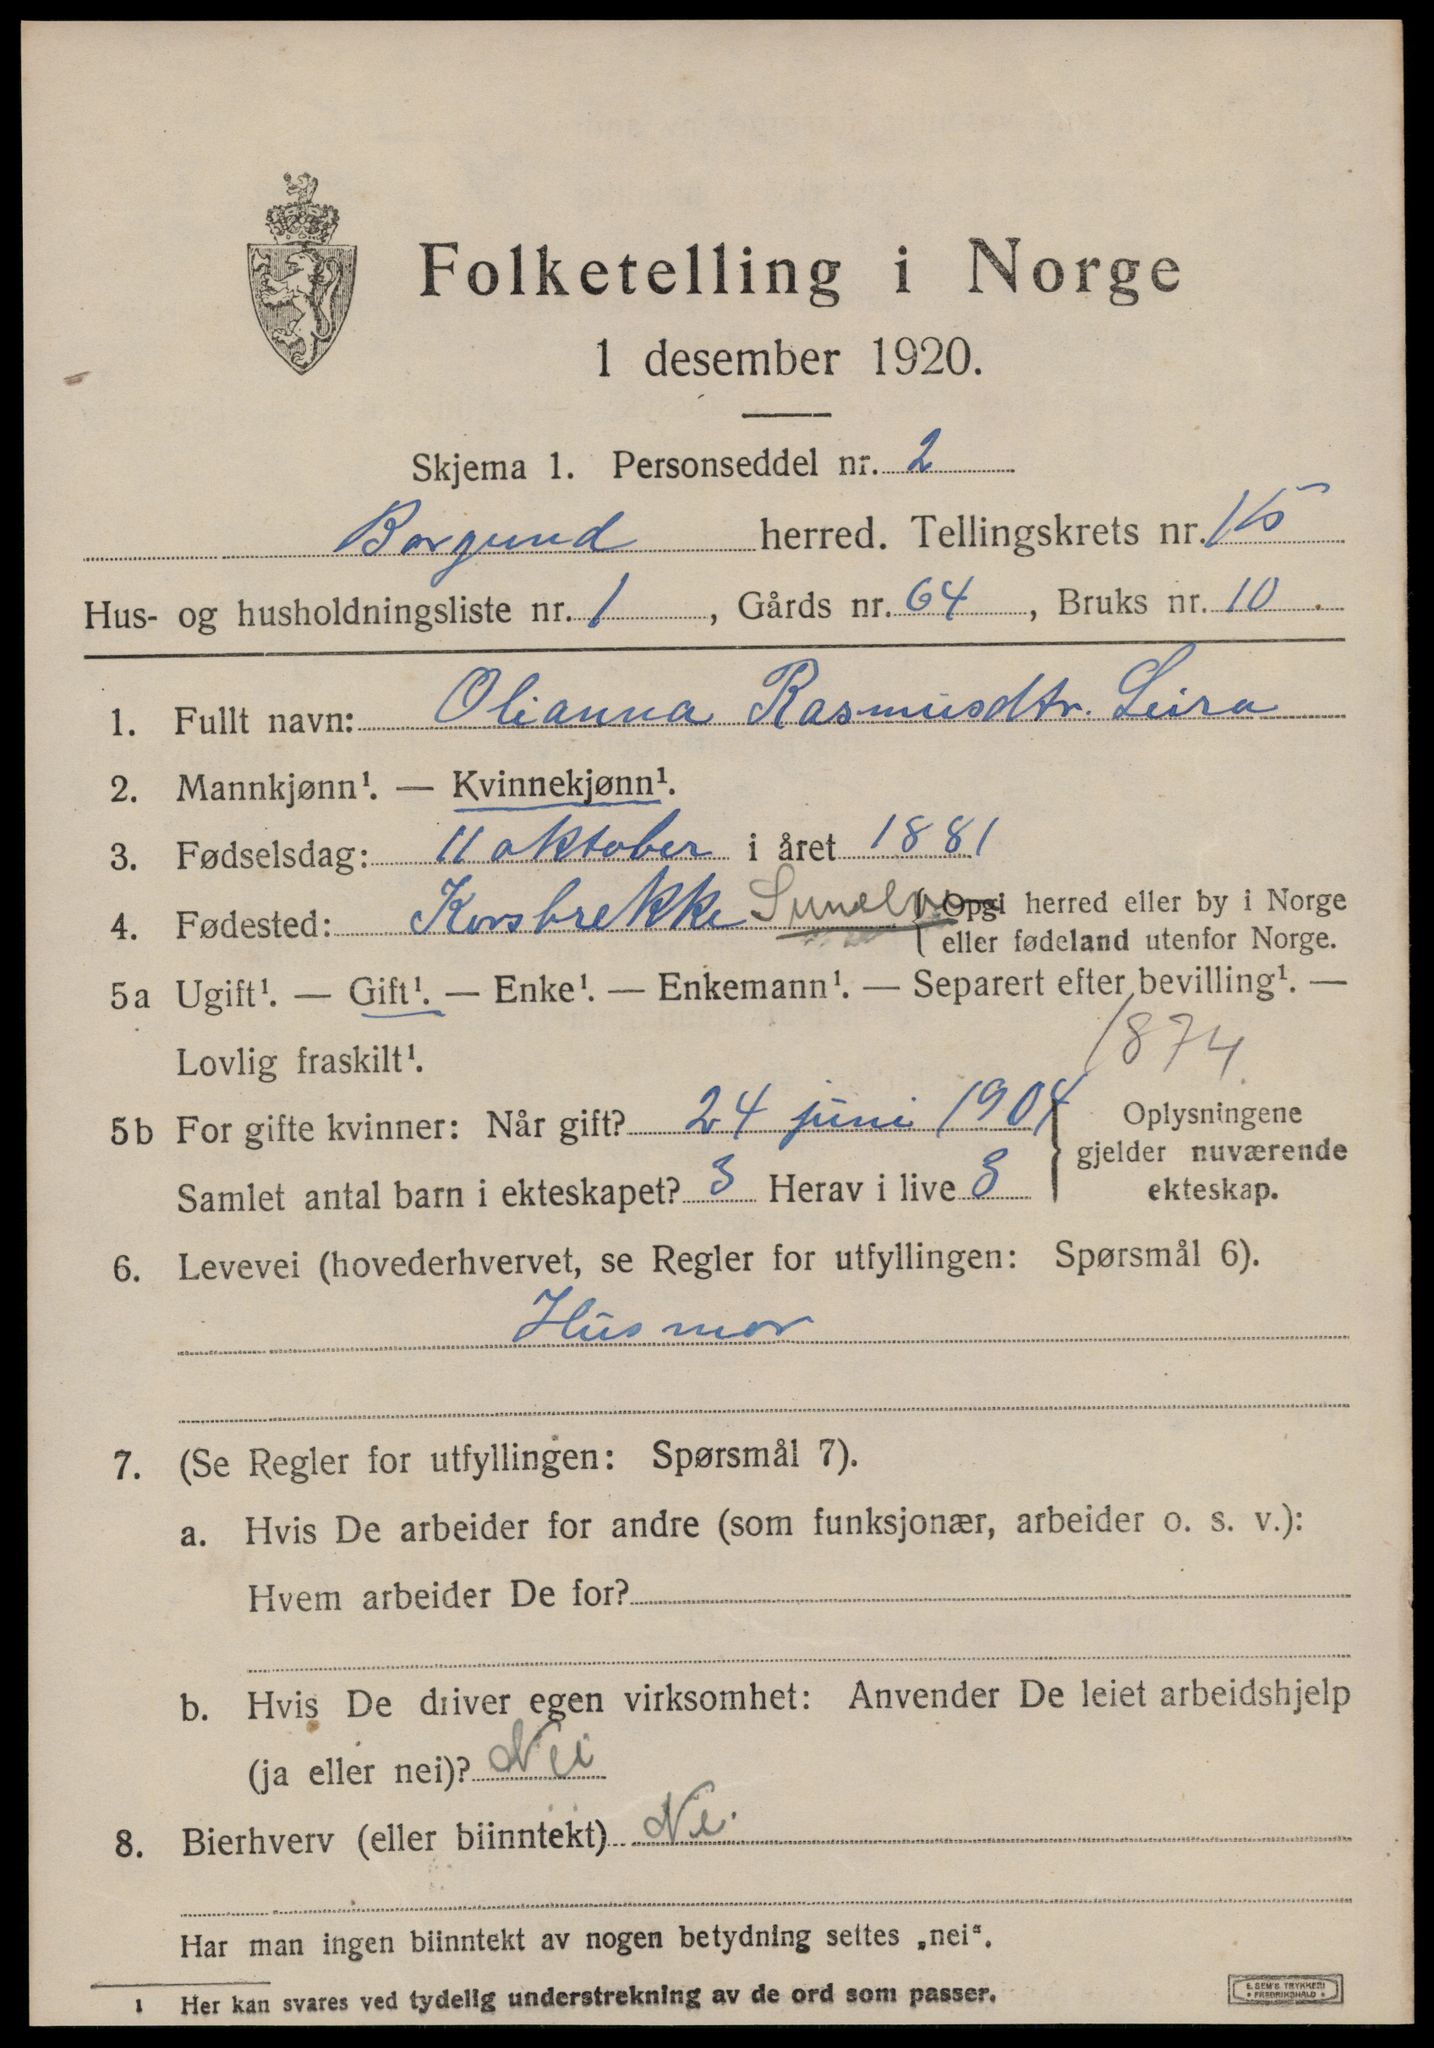 Folketelling i Norge
1 desember 1920.
Skjema 1. Personseddel nr. 2
Borgund herred. Tellingskrets nr. 15
Hus- og husholdningsliste nr. 1, Gårds nr. 64, Bruks nr. 10.
1. Fullt navn: Olianna Rasmusdtr. Leira
2. Mannkjønn¹. — Kvinnekjønn¹.
3. Fødselsdag: 11 oktober i året 1881
4. Fødested: Korsbrekke { Opgi herred eller by i Norge
eller fødeland utenfor Norge.
5a Ugift¹. — Gift¹. — Enke¹. — Enkemann¹. — Separert efter bevilling¹. —
1874
Lovlig fraskilt¹.
5b For gifte kvinner: Når gift? 24 juni 1904
Samlet antal barn i ekteskapet? 3 Herav i live 3
} Oplysningene
gjelder nuværende
ekteskap.
6. Levevei (hovederhvervet, se Regler for utfyllingen: Spørsmål 6).
Husmor
7. (Se Regler for utfyllingen: Spørsmål 7).
a. Hvis De arbeider for andre (som funksjonær, arbeider o. s. v.):
Hvem arbeider De for?
b. Hvis De driver egen virksomhet: Anvender De leiet arbeidshjelp
(ja eller nei)? Nei
8. Bierhverv (eller biinntekt) Nei
Har man ingen biinntekt av nogen betydning settes „nei".
1 Her kan svares ved tydelig understrekning av de ord som passer.
E. SEM'S TRYKKERI
• FREDRIKSHALD •